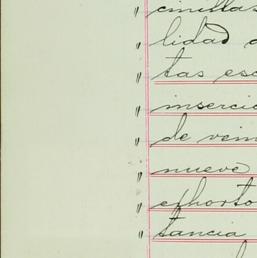 " cinillas
" lidad
" tas esc
" inserció
" de vein
" nueve
" exhorto
" tancia